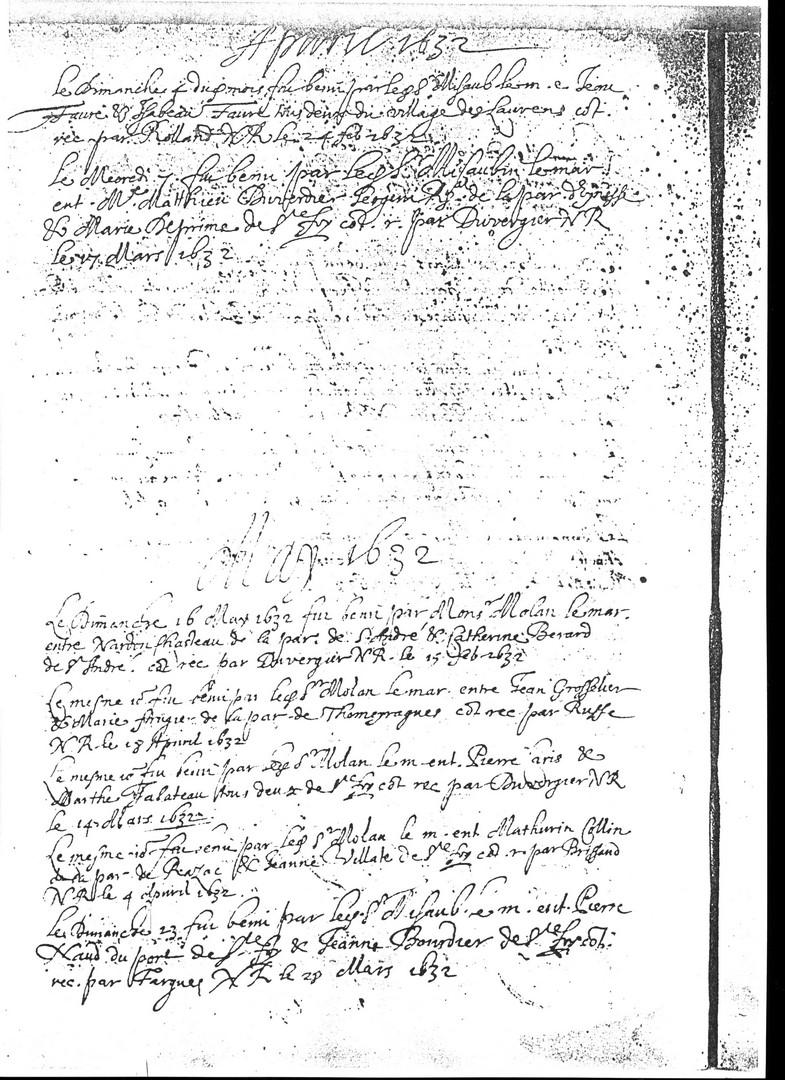 Apvril 1632
Le Dimanche 4 dud mois fut beni par led Sr Misaub le m. e Jean
Faure & Isabeau Faure tous deux du village des Laurens cot.
rec par Rolland NR le 24 feb 1632
Le Mecredi 7. fut beni par led Sr Misaubin le mar
ent. Me Matthieu Duverdier de la par.
& Marie Deprime de Ste foy cot. r. par Duvergier NR
le 17 Mars 1632
May 1632
Le Dimanche 16 May 1632 fut beni par Monsr Molan le mar.
entre Nardon Chasteau de la par. de St André & Catherine Berard
de St André. cot rec par Duvergier NR. le 15 feb 1632
Le mesme io fut beni par led Sr Molan le mar entre Jean Grosolier
& Marie de la par. de Thomeyragues cot rec par Ruffe
NR le 18 Apvril 1632
Le mesme io fut beni par led Sr Molan le m. ent. Pierre aris &
Marthe Jabateau tous deux de Ste foy cot rec par Duvergier NR
le 14 Mars 1632
Le mesme io fut beni par led Sr Molan le m. ent Mathurin Collin
de la par. de Razac & Jeanne Villate de Ste foy cot. r. par Brisaud
NR le 4 Apvril 1632.
Le Dimanche 23 fut beni par led Sr Misaub. le m. ent. Pierre
Naud du port de Ste foy & Jeanne Bourdier de Ste foy cot.
rec. par Fargues NR le 28 Mars 1632